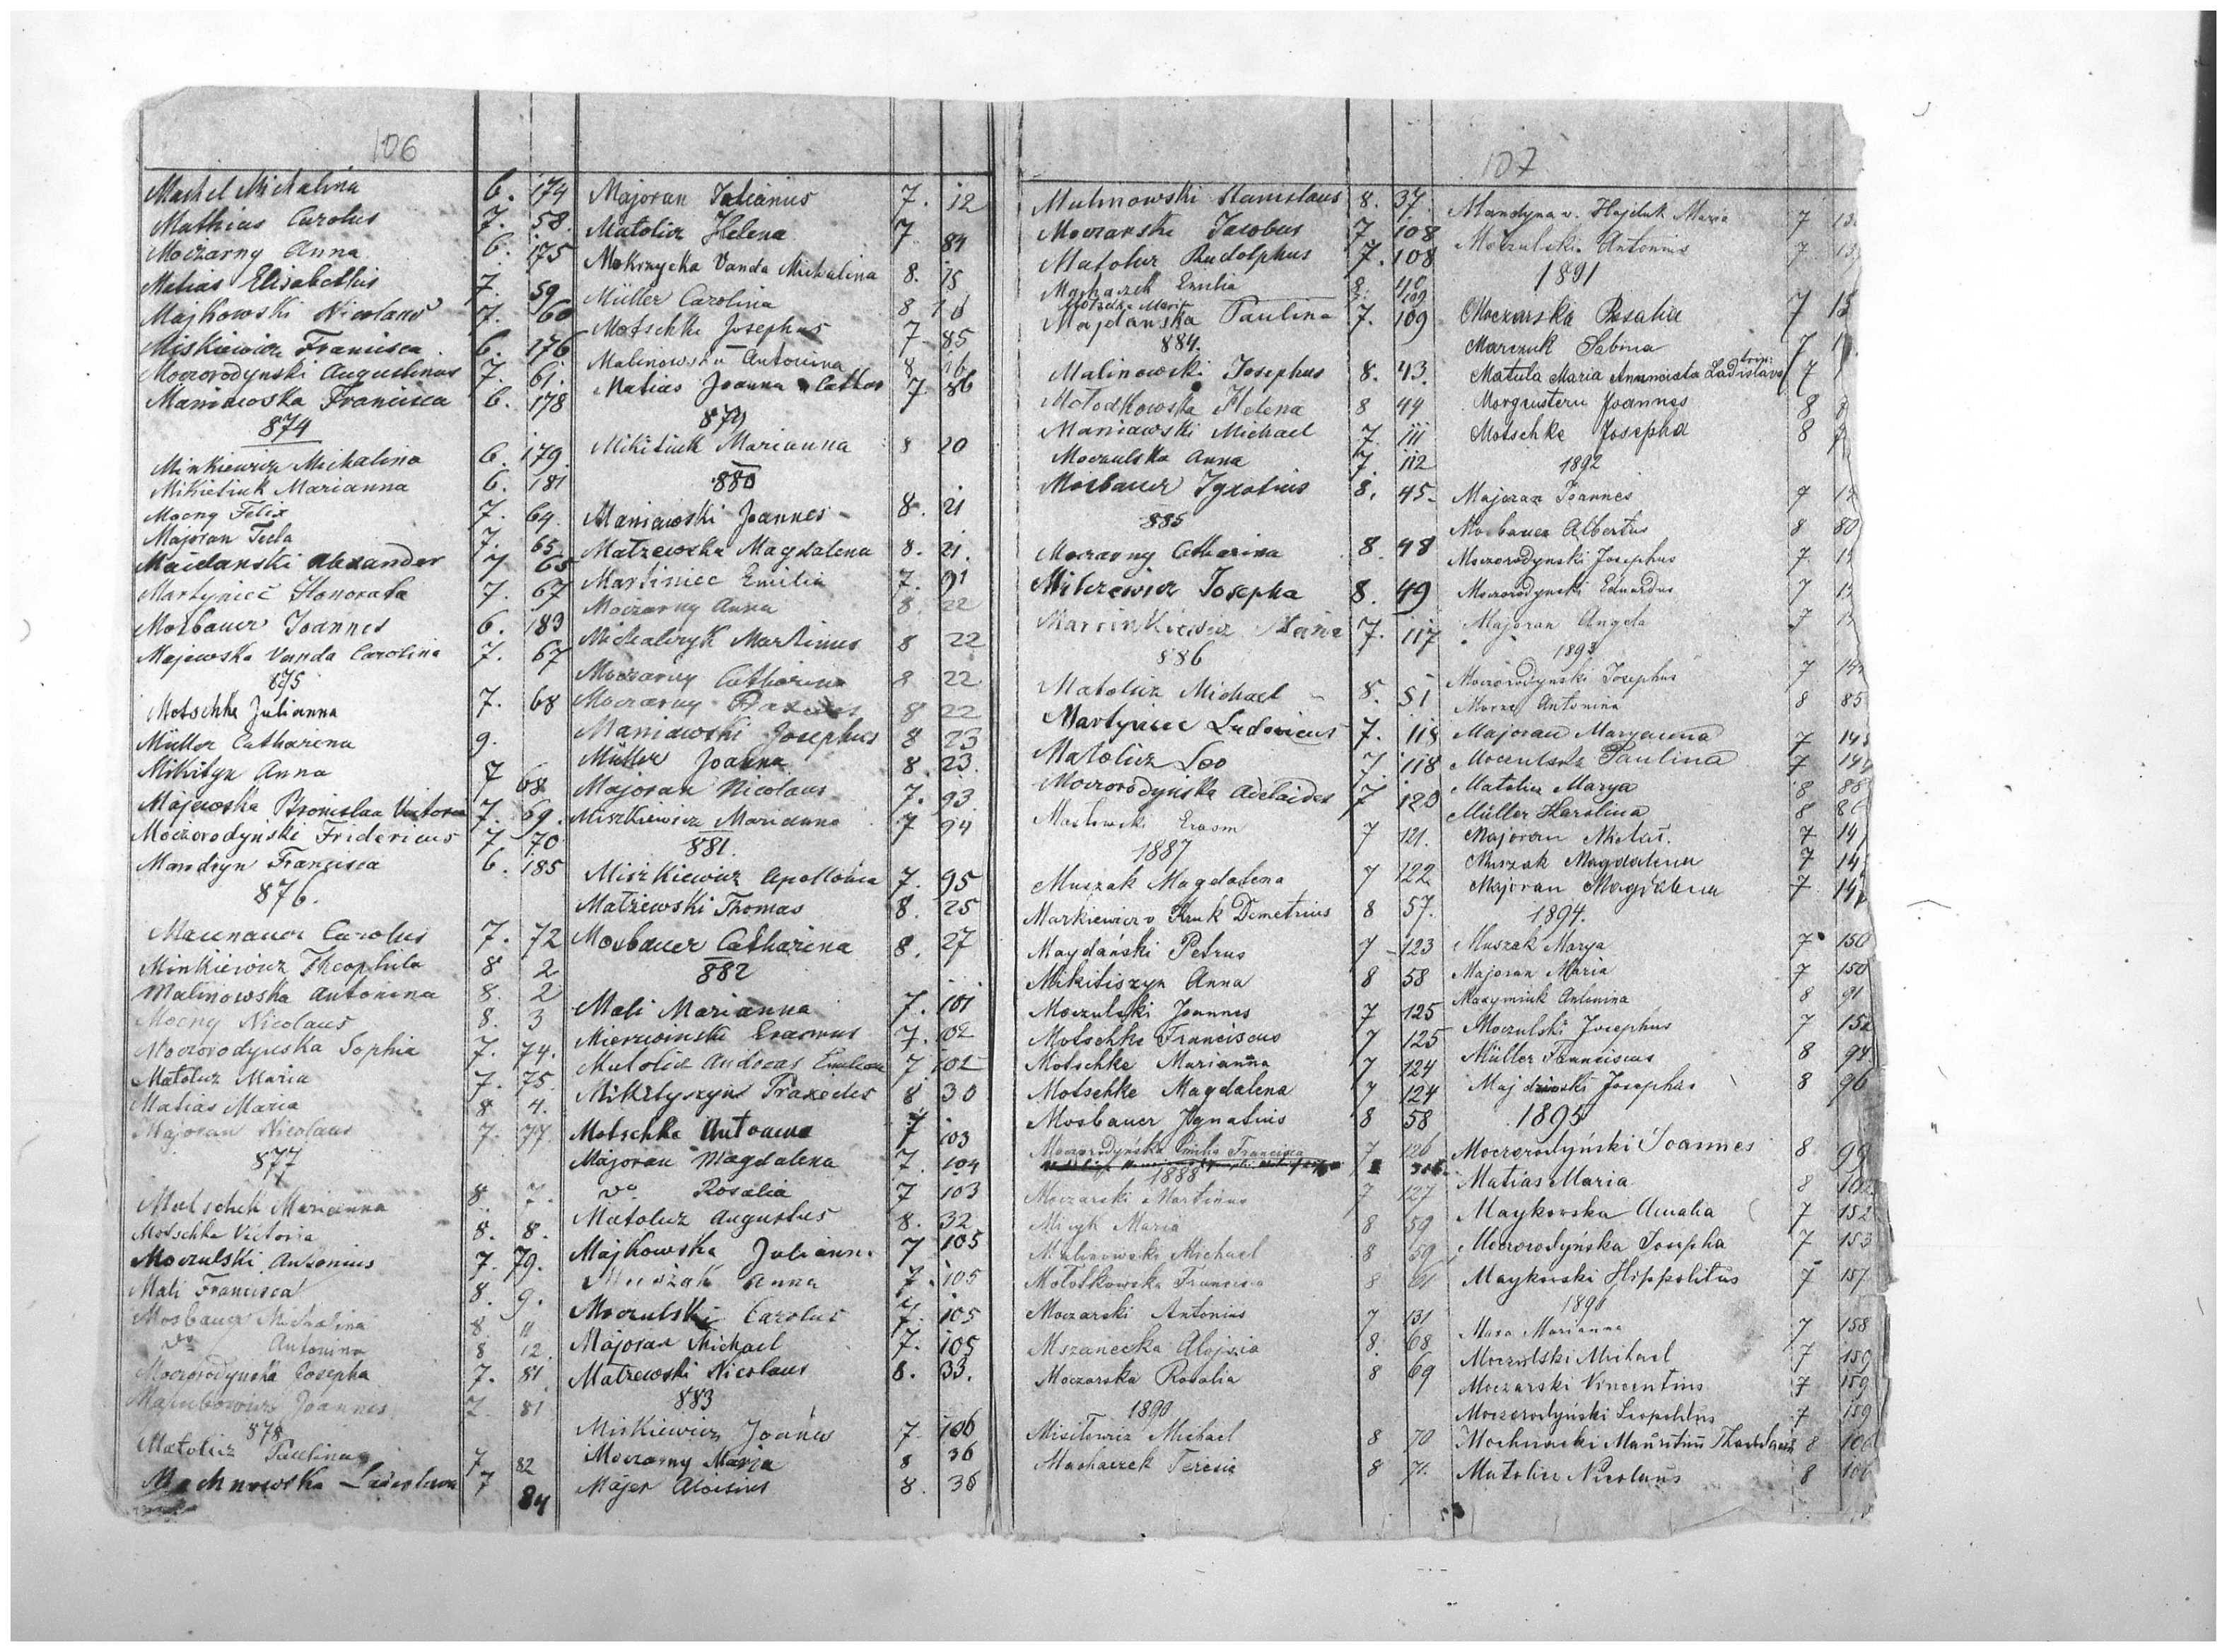 106
Machel Michalina 6. 174
Mathias Carolus 7. 58.
Moczarny Anna 6. 175
Matias Elisabethis 7. 59
Majkowski Nicolaus 7. 60
Miskiewicz Francisca 6. 176
Moczorodynski Augustinus 7. 61.
Maniawska Francisca 6. 178
874
Minkiewicz Michalina 6. 179.
Mikietiuk Marianna 6. 181
Mocny Felix 7. 64.
Majoran Tecla 7. 65
Maidanski Alexander 7 65
Martyniec Honorata 7. 67
Mosbauer Joannes 6. 183
Majewska Vanda Carolina 7. 67
875
Motschke Julianna 7. 68
Müller Catharina 9.
Mikityn Anna 7 68
Majewska Bronislaa Victoria 7. 69.
Moczorodynski Fridericus 7 70
Mandzyn Francisca 6. 185
876.
Carolus 7. 72
Minkiewicz Theophila 8 2
Malinowska Antonina 8. 2
Mocny Nicolaus 8. 3
Moczorodynska Sophia 7. 74.
Matolicz Maria 7. 75.
Matias Maria 8 4.
Majoran Nicolaus 7. 77.
877
Motschek Marianna 8. 7.
Motschke Victoria 8. 8.
Moczulski Antonius 7. 79.
Mali Francisca 8. 9.
Mosbauer Michalina 8. 11
do Antonina 8 12.
Moczorodynska Josepha 7. 81
Joannes 7. 81
878
Matolicz Paulina 7 82
Machnowska Ladislava 7 84
Majoran Julianus 7. 12
Matolicz Helena 7 84
Mokrzycka Vanda Michalina 8. 15
Müller Carolina 8
Motschke Josephus 7 85
Malinowska Antonina 8 16
Matias Joanna Cathar 7. 86
879
Mikitiuk Marianna 8 20
880
Maniawski Joannes 8. 21
Matzewska Magdalena 8. 21.
Martiniec Emilia 7. 91
Moczarny Anna 8. 22
Michalczyk Martinus 8 22
Moczarny Catharina 8 22
Moczarny 8 22
Maniawski Josephus 8 23
Müller Joanna 8. 23.
Majoran Nicolaus 7. 93
Miszkiewicz Marianna 7 94
881.
Miszkiewicz Apollonia 7. 95
Matzewski Thomas 8. 25
Mosbauer Catharina 8. 27
882
Mali Marianna 7. 101
Mierzwinski Erasmus 7. 102
Matolicz Andreas 7 102
Mikityszyn Praxedes 8 30
Motschke Antonina 7 103
Majoran Magdalena 7. 104
do Rosalia 7 103
Matolicz Augustus 8. 32
Majkowska Juliann. 7 105
Muszak Anna 7. 105
Moczulski Carolus 7. 105
Majoran Michael 7. 105
Matzewski Nicolaus 8. 33.
883
Miskiewicz Joannes 7. 106
Moczarny Maria 8 36
Majer Aloisius 8. 36
107
Malinowski Stanislaus 8. 37.
Moczarski Jacobus 7 108
Matolicz Rudolphus 7. 108
Machaczek Emilia 8. 40
Majdanska Paulina 7. 109
884.
Malinowski Josephus 8. 43.
Mołodkowska Helena 8 44
Maniawski Michael 7. 111
Moczulska Anna 7. 112
Mosbauer Ignatius 8. 45.
885
Moczarny Catharina 8. 48
Milczewicz Josepha 8. 49
Marcinkiewicz Maria 7. 117
886
Matolicz Michael 8. 51
Martyniec Ludovicus 7. 118
Matolicz Leo 7. 118
Moczorodyńska Adelaides 7 120
Erasm 7 121.
1887
Muszak Magdalena 7 122
Markiewicz v. Kruk Demetrius 8 57.
Maydanski Petrus 7 123
Mikitiszyn Anna 8 58
Moczulski Joannes 7 125
Motschke Franciscus 7 125
Motschke Marianna 7 124
Motschke Magdalena 7 124
Mosbauer Ignatius 8 58
Moczorodyńska Emilia Francisca 7 126
1888
Moczarski Martinus 7 127
Micyk Maria 8 59
Malinowski Michael 8 59
Mołotkowska Francisca 8 61
Moczarski Antonius 7 131
Mszanecka Alojsia 8. 68
Moczarska Rosalia 8 69
1890
Misilewicz Michael 8 70
Machaczek Teresia 8 71.
Mandyna v. Hajduk Maria 7
Moczulski Antonius 7
1891
Moczarska Rosalia 7 15
Marczuk Sabina 7
Matula Maria Anunciata Ladislava 7
Morgenstern Joannes 8
Motschke Josepha 8
1892
Majoran Joannes 7
Mosbauer Albertus 8 80
Moczorodynski Josephus 7.
Moczorodynski Eduardus 7
Majoran Angela 7
1893
Moczorodynski Josephus 7
Moroz Antonina 8 85
Majoran Maryanna 7
Moczulska Paulina 7
Matolicz Marya 8
Müller Karolina 8
Majoran 7
Muszak Magdalena 7
Majoran Magdalena 7
1894.
Muszak Marya 7 150
Majoran Maria 7 150
Maxymiuk Antonina 8 91
Moczulski Josephus 7 152
Müller Franciscus 8 94
Josephus 8 96
1895
Moczorodyński Joannes 8 99
Matias Maria 8 102
Maykowska Amalia 7 152
Moczorodyńska Josepha 7 153
Maykowski Hippolitus 7 157
Marianna 7 158
Moczulski Michael 7 159
Moczarski Vincentius 7 159
Moczorodyński Leopoldus 7 159
Mochnacki Mauritius 8 106
Matolicz Nicolaus 8 106